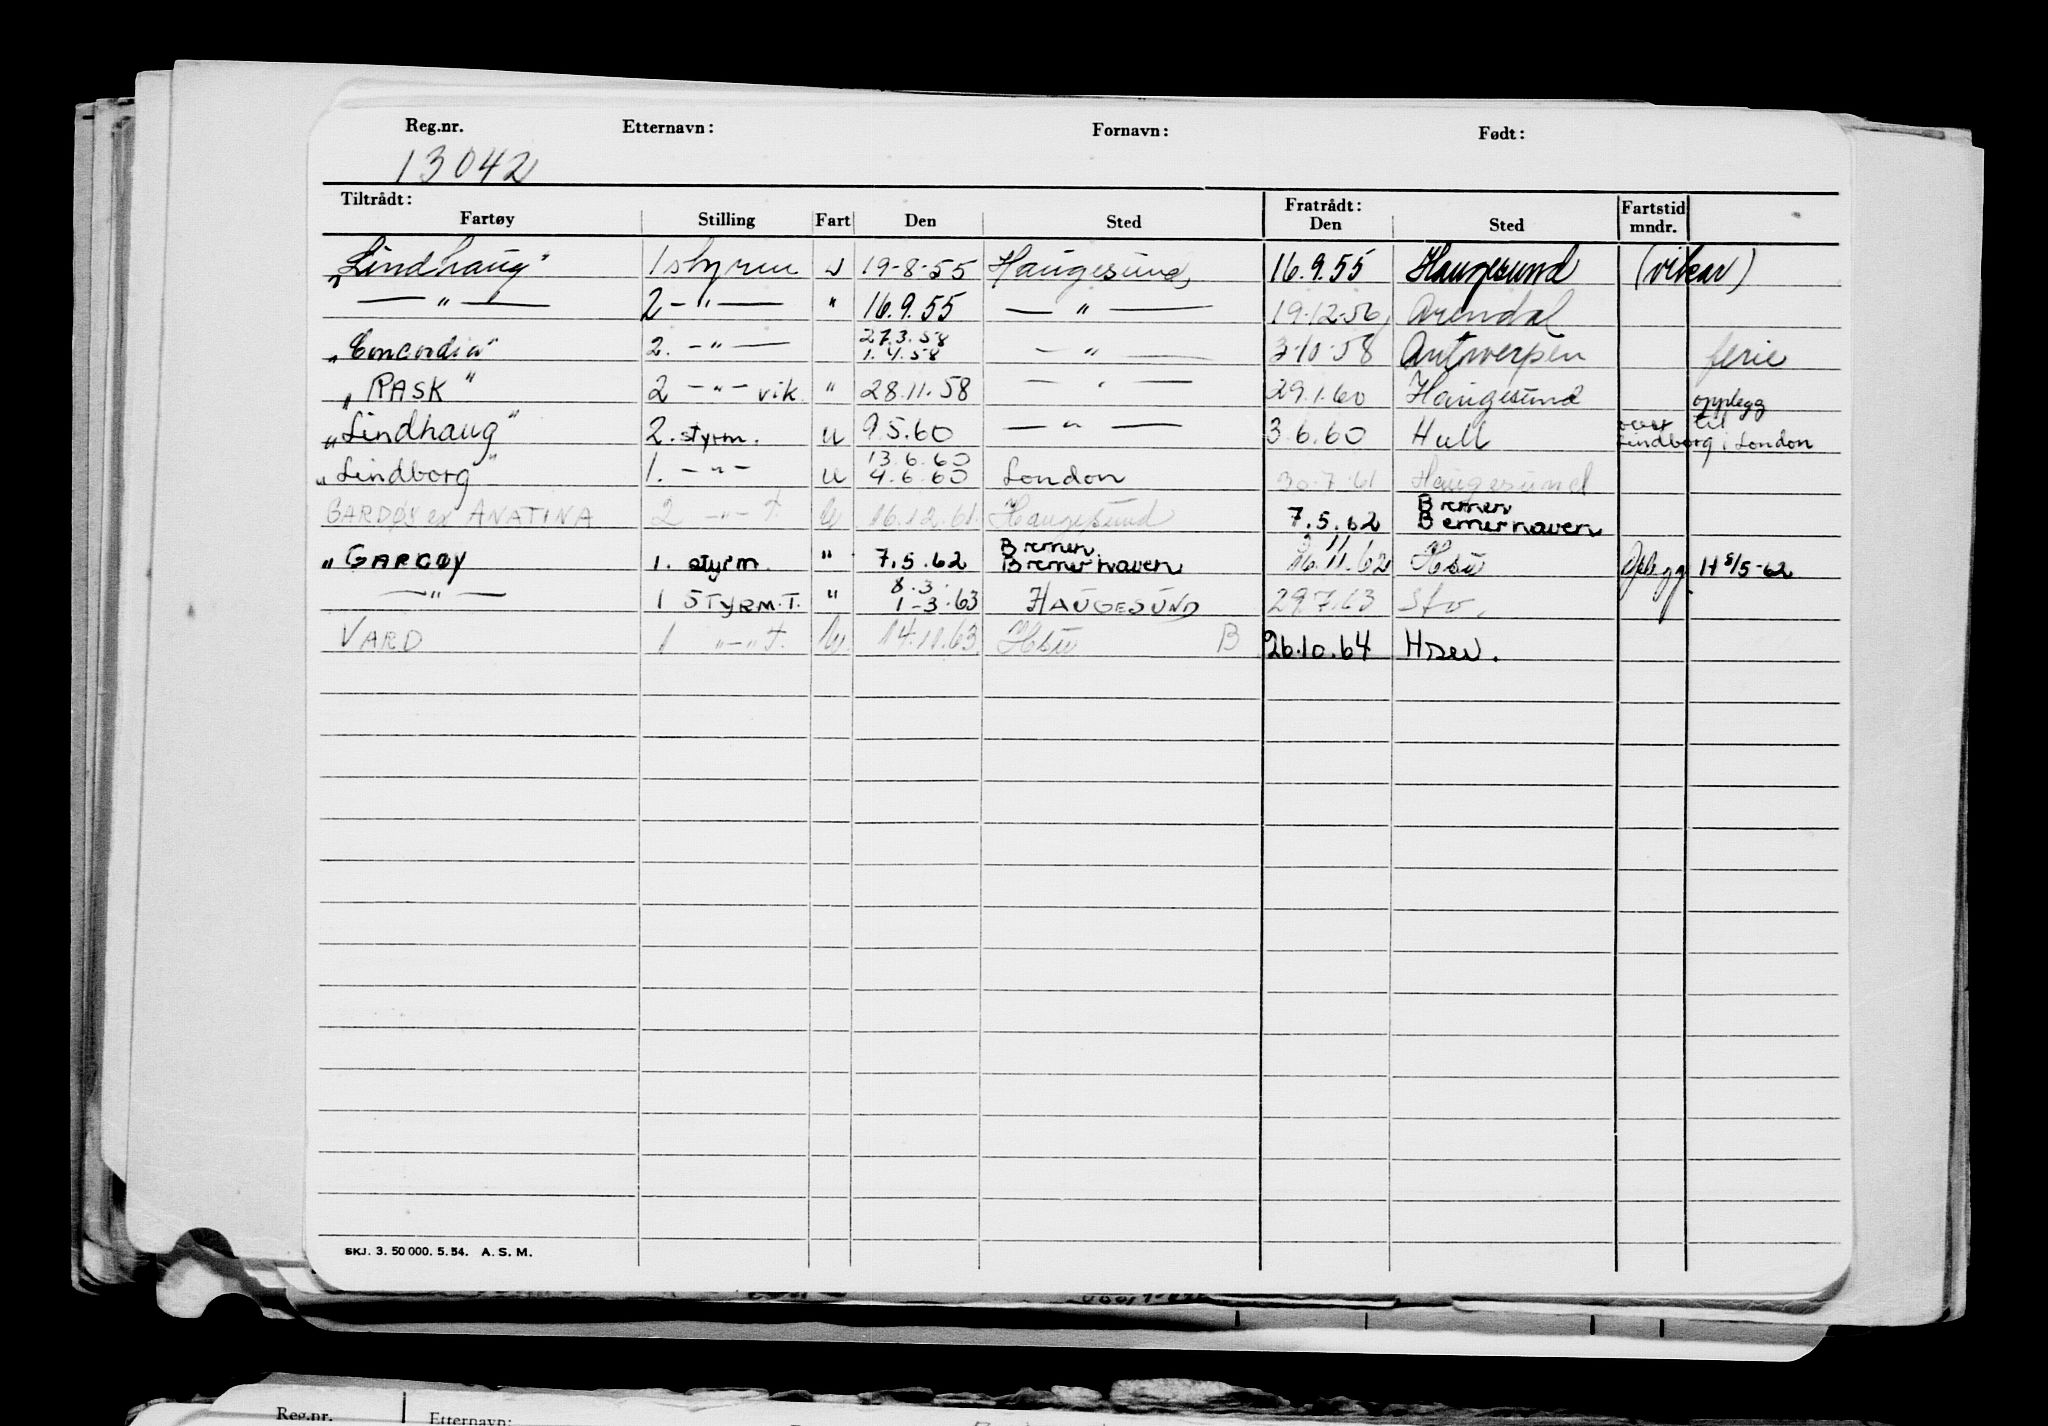 Reg.nr. Etternavn: Fornavn: Født:
13042
Tiltrådt: Fratrådt: Fartstid
Fartøy Stilling Fart Den Sted Den Sted mndr.
„Lindhaug" 1 styrm u 19-8-55 Haugesund, 16.9.55 Haugesund (vikar)
— " — 2 - " — " 16.9.55 — " — 19-12-56 Arendal
27.3.58
„Concordia" 2. - " — 1.4.58 — " — 3-10-58 Antwerpen ferie
„RASK" 2 - " - vik. " 28.11.58 — " — 29.1.60 Haugesund
opplegg
„Lindhaug" 2. styrm. u 9.5.60 — " — 3.6.60 Hull over til
Lindborg i London
13.6.60
„Lindborg" 1. - " - u 4.6.60 London 30.7.61 Haugesund
BARDØY ex ANATINA 2 - " - t U 16.12.61 Haugesund 7.5.62 Bremen
Bremerhaven
„GARDØY 1. styrm. " 7.5.62 Bremen
Bremerhaven 16.11.62 Hsu Opplegg. H 5/5-62
8.3.
— " — 1 STYRM.T. " 1-3-63 HAUGESUND 29.7.63 Stv.
VARD 1 " - " t. U. 14.11.63 Hsu B 26.10.64
SKJ. 3. 50 000. 5. 54. A. S. M.
Reg.nr. Etternavn: